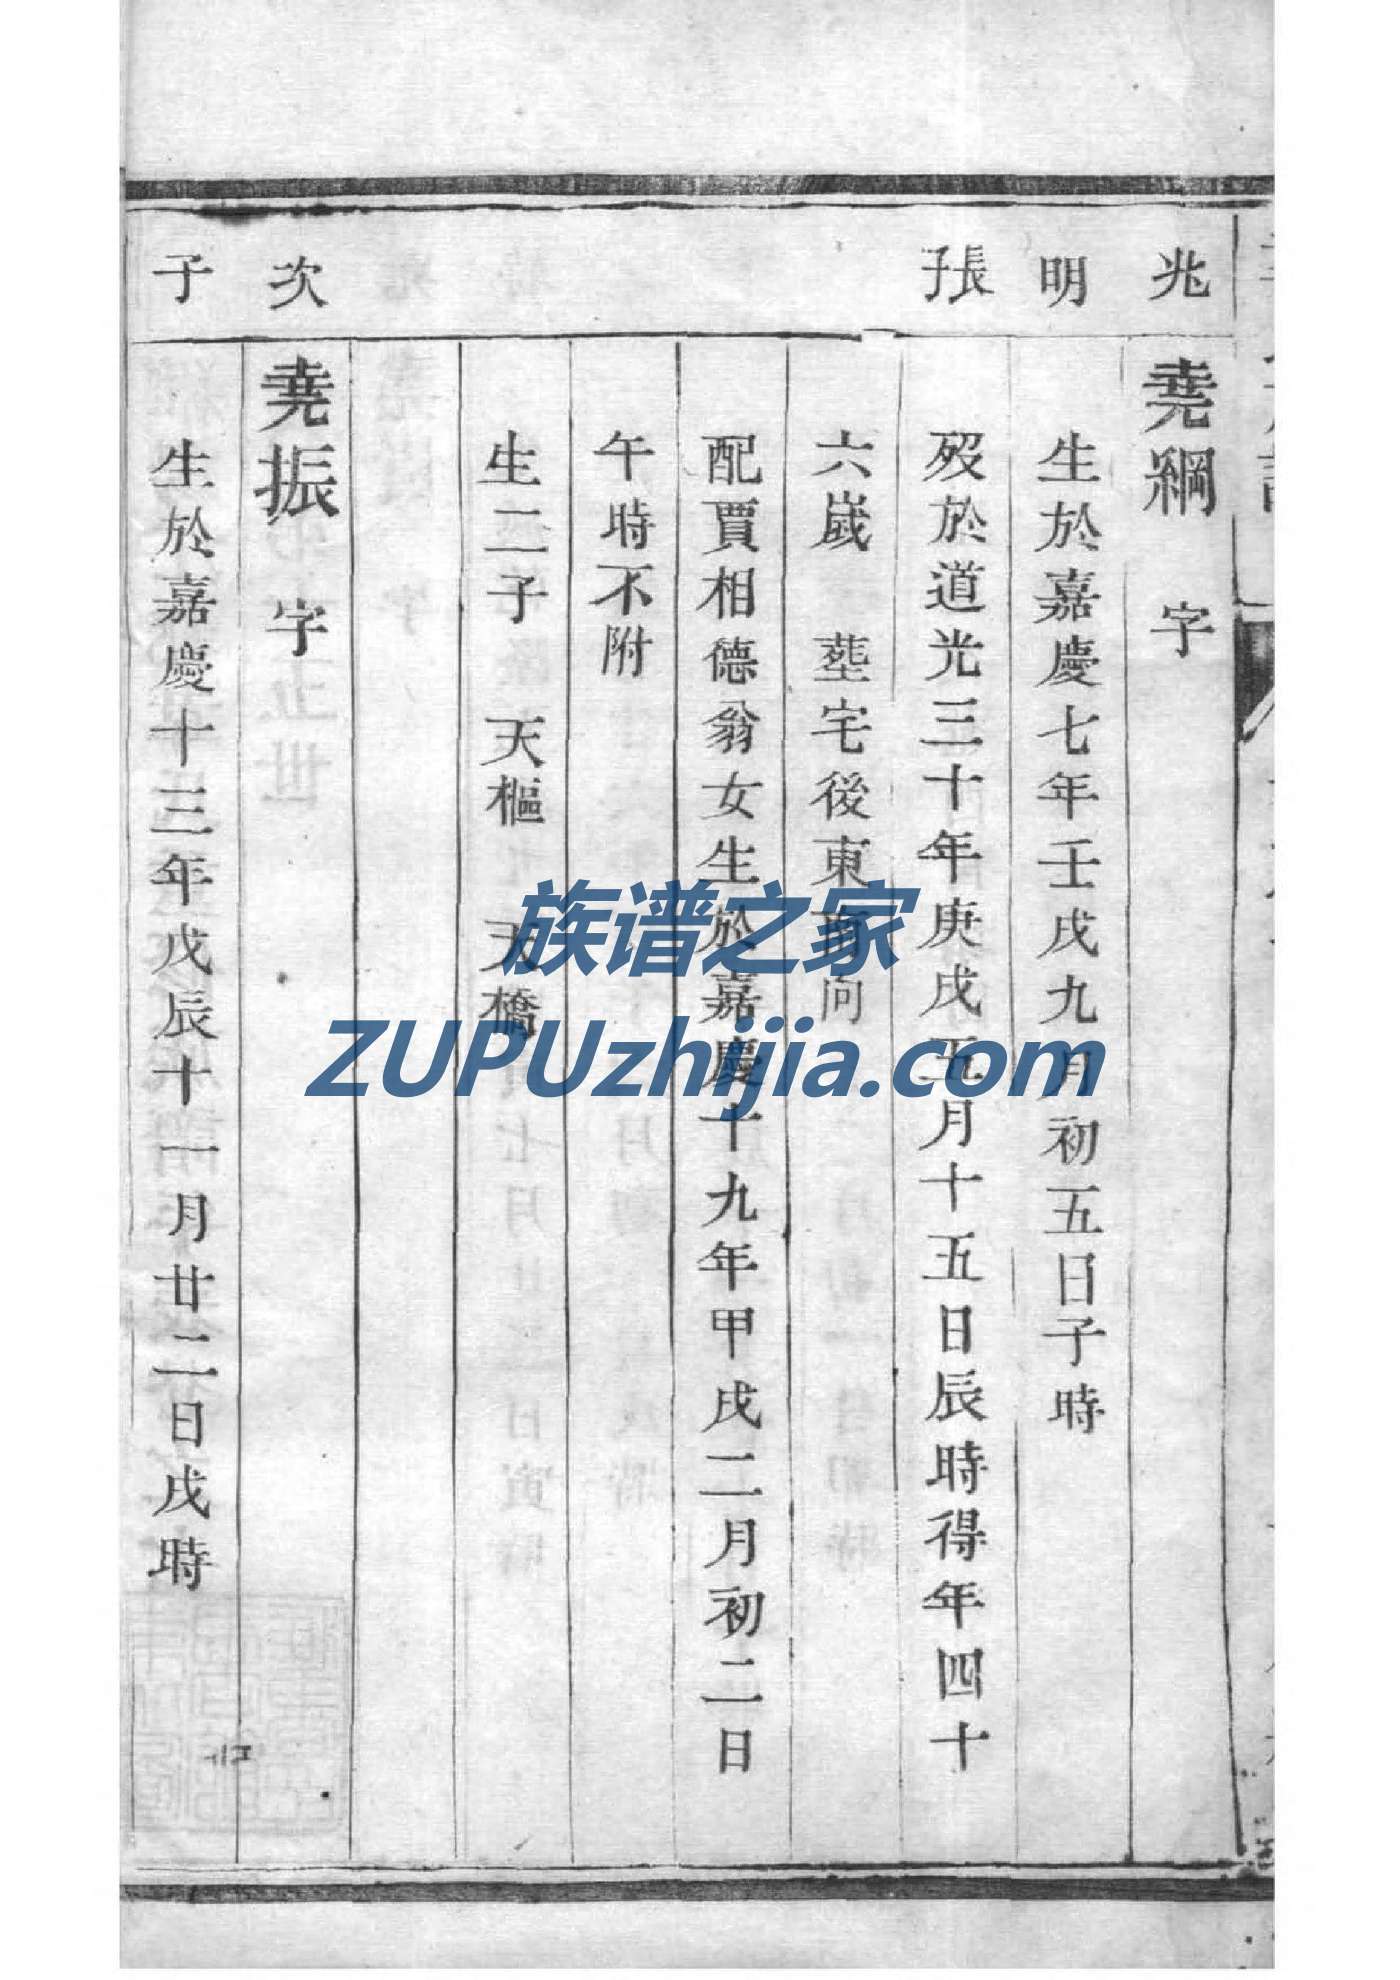 兆
堯綱 字
明
生於嘉慶七年壬戌九月初五日子時
張子
歿於道光三十年庚戌五月十五日辰時得年四十
六歲 塟宅後東南向
配賈相德翁女生於嘉慶十九年甲戌二月初二日
午時不附
生二子 天樞 天橋
次
堯振 字
子
生於嘉慶十三年戊辰十一月廿二日戌時
族谱之家
ZUPUzhijia.com